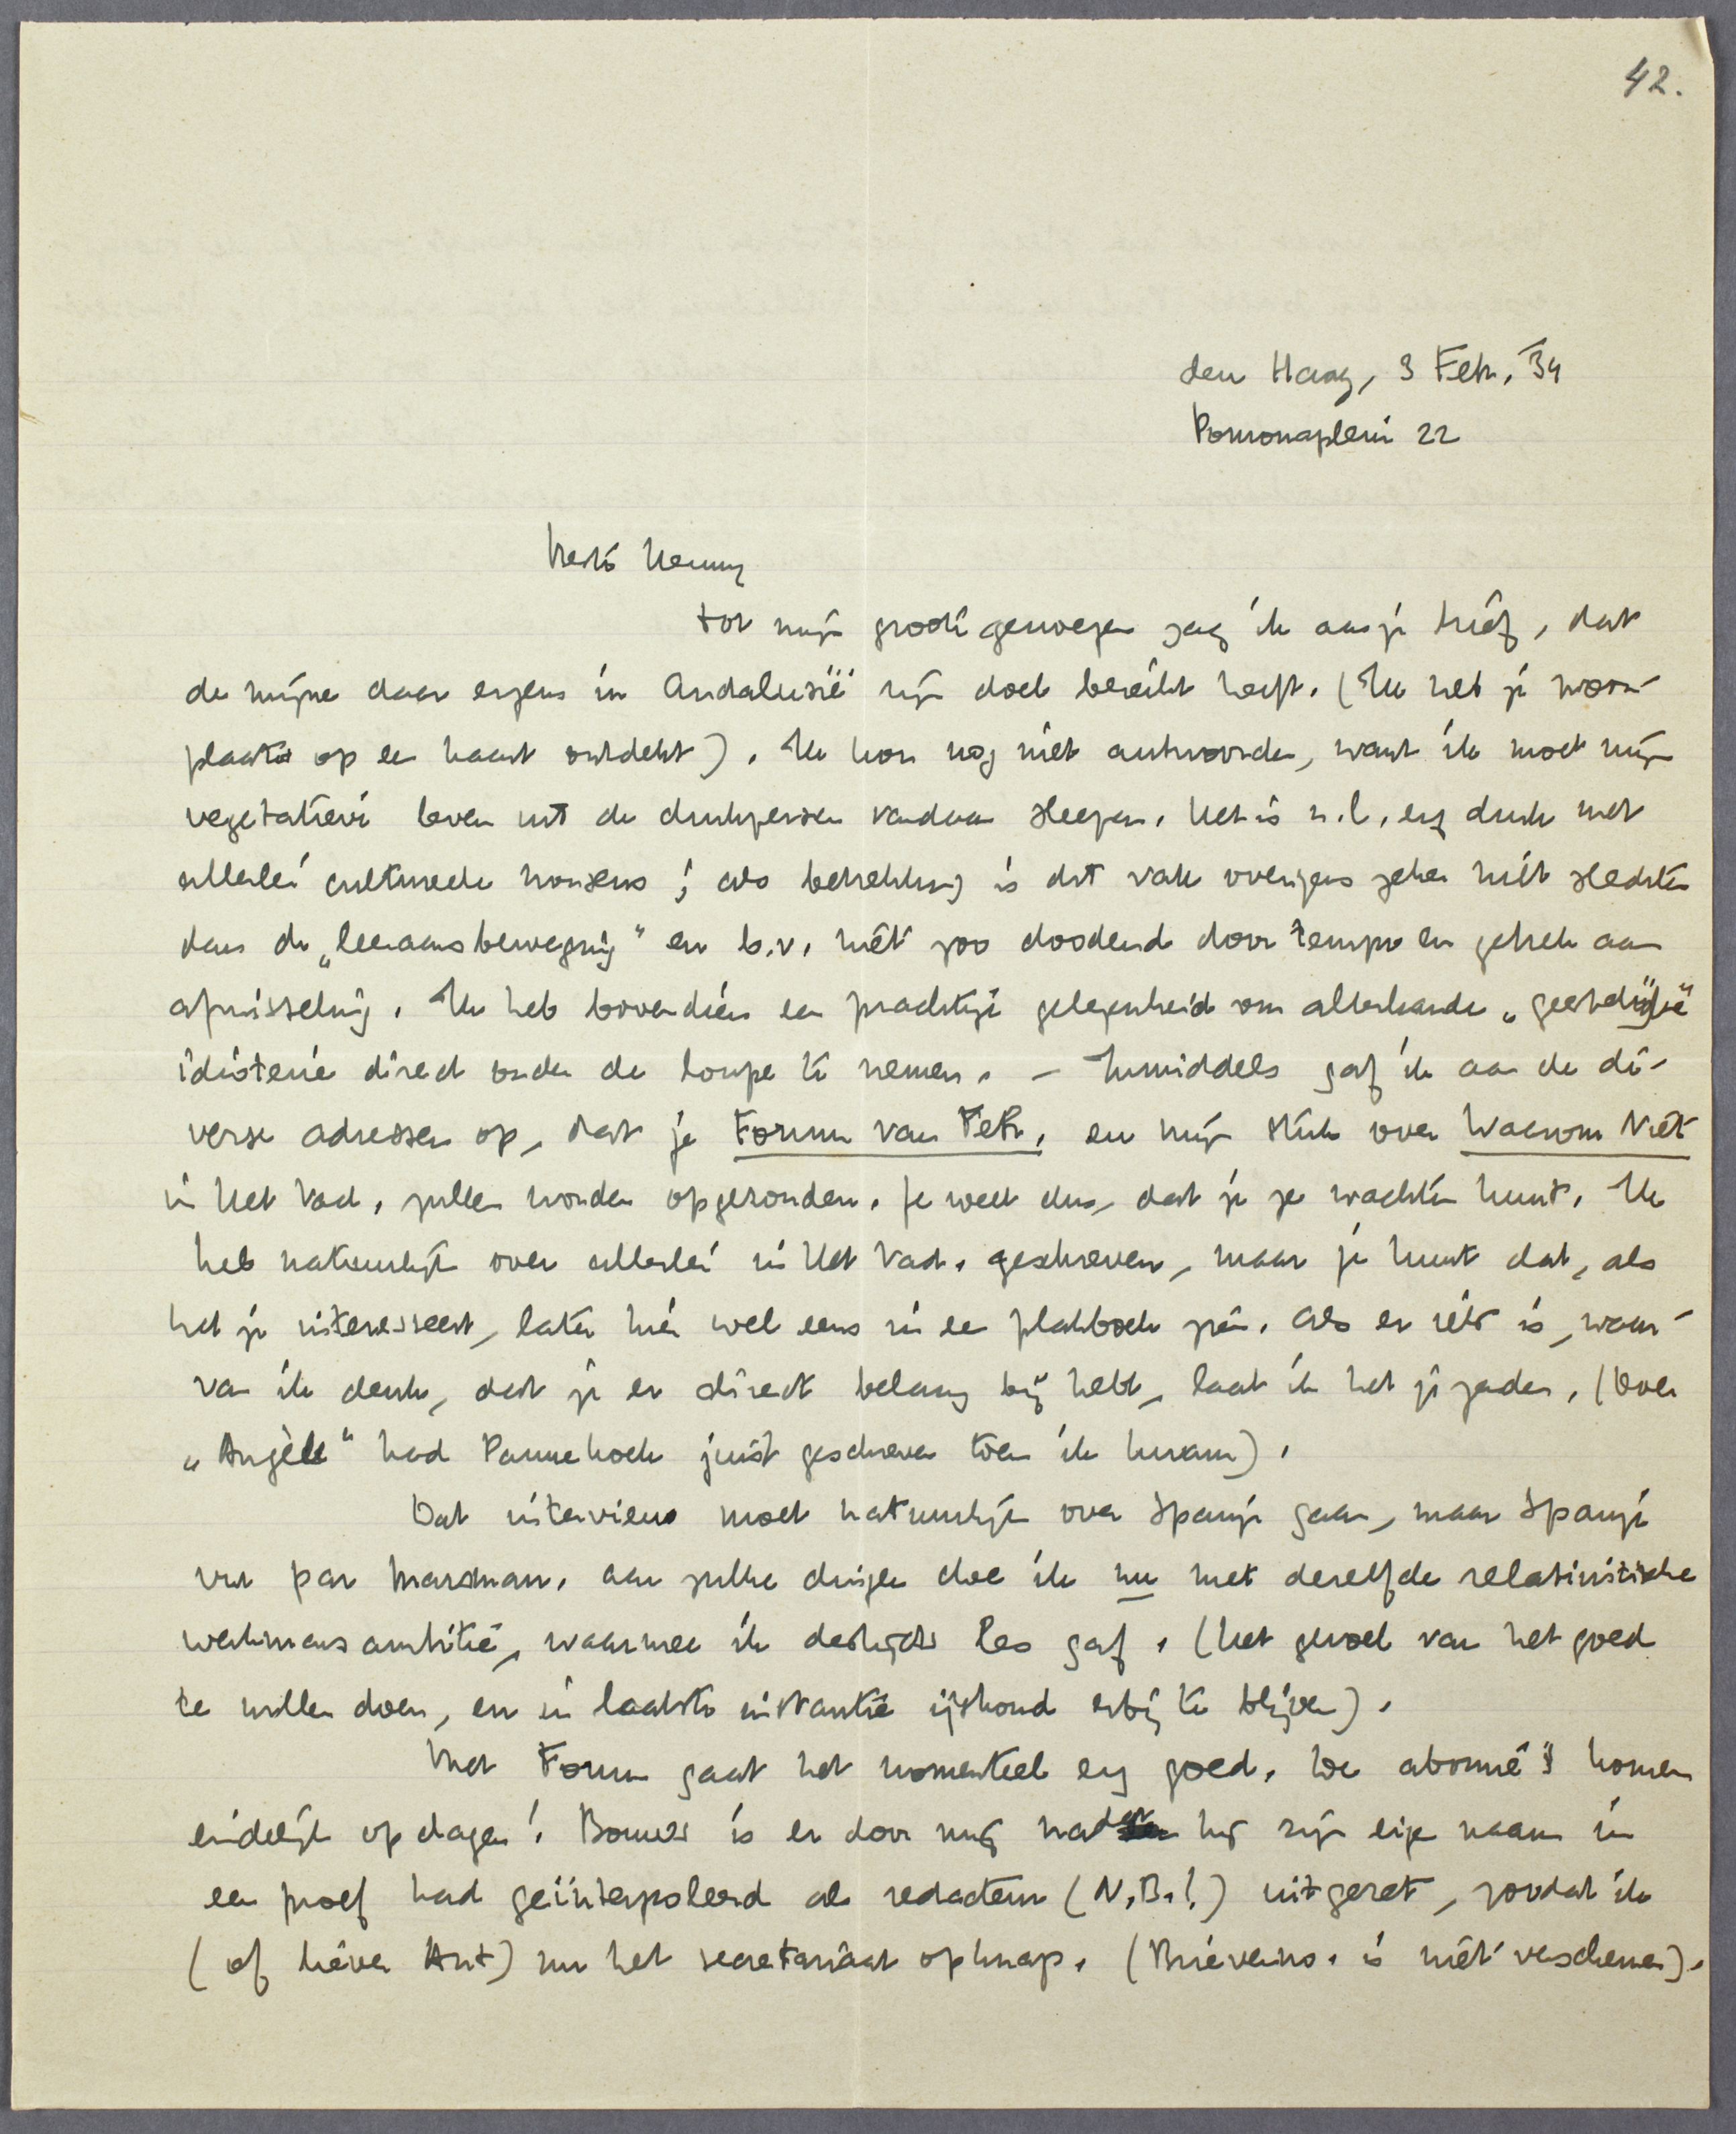 42.
den Haag, 3 Febr. '34
Pomonaplein 22
Beste Henny
Tot mijn groote genoegen zag ik aan je brief, dat
de mijne daar ergens in Andalusië zijn doel bereikt heeft. (Ik heb je woon-
plaats op een kaart ontdekt). Ik kon nog niet antwoorden, want ik moet mijn
vegetatieve leven uit de drukpersen vandaan sleepen. Het is n.l. erg druk met
allerlei cultureele nonsens; als betrekking is dit vak overigens zeker niet slechter
dan de „leeraarsbeweging" en b.v. niet zoo doodend door tempo en gebrek aan
afwisseling. Ik heb bovendien een prachtige gelegenheid om allerhande „geestelijke"
idioterie direct onder de loupe te nemen. – Inmiddels gaf ik aan de di-
verse adressen op, dat je Forum van Febr. en mijn stuk over Waarom Niet
in Het Vad. zullen worden opgezonden. Je weet dus, dat je ze wachten kunt. Ik
heb natuurlijk over allerlei in Het Vad. geschreven, maar je kunt dat, als
het je interesseert, later hier wel eens in een plakboek zien. Als er iets is, waar-
van ik denk, dat je er direct belang bij hebt, laat ik het je zenden. (Over
„Angèle" had Pannekoek juist geschreven toen ik kwam).
Dat interview moet natuurlijk over Spanje gaan, maar Spanje
vu par Marsman. Aan zulke dingen doe ik nu met dezelfde relativistische
werkmansambitie, waarmee ik destijds les gaf. (Het gevoel van het goed
te willen doen, en in laatste instantie ijskoud erbij te blijven).
Met Forum gaat het momenteel erg goed. De abonné's komen
eindelijk opdagen! Bouws is er door mij nadat hij zijn eigen naam in
een proef had geïnterpoleerd als redacteur (N.B.!) uitgezet, zoodat ik
(of liever Ant) nu het secretariaat opknap. (Brievenno. is niet verschenen).